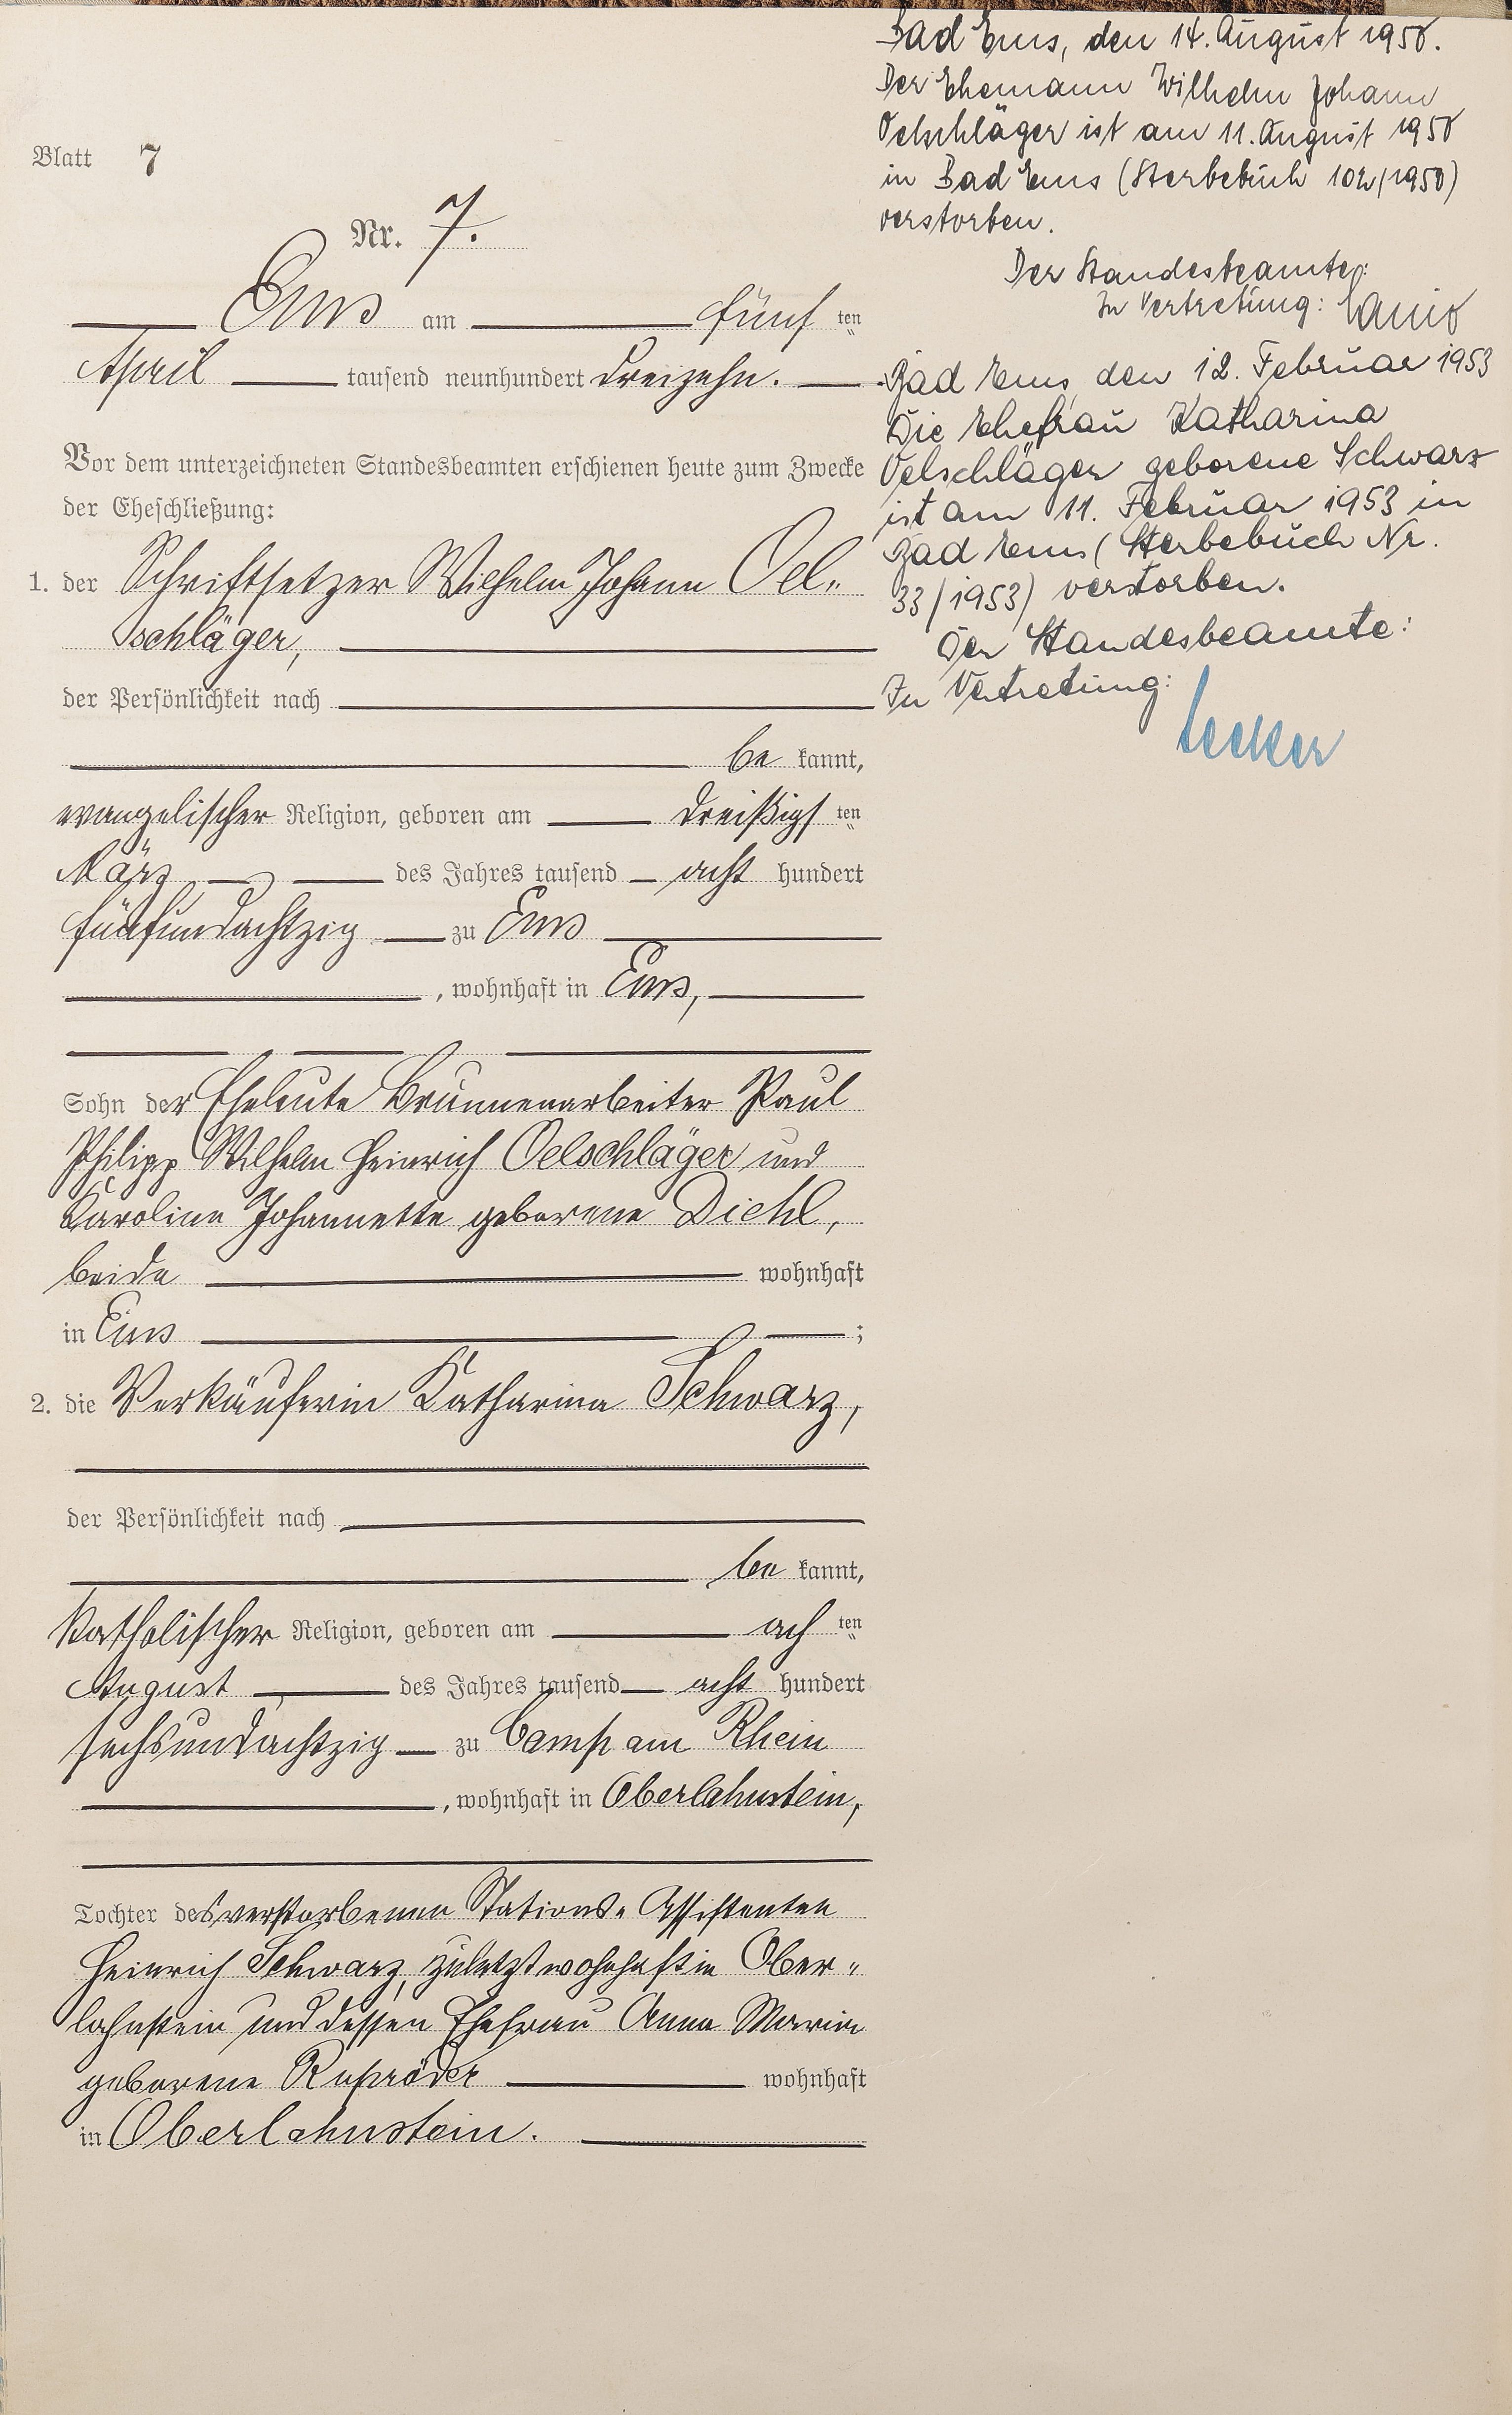 Blatt 7
Nr. 7.
Ems am fünf ten
April tausend neunhundert dreizehn.
Vor dem unterzeichneten Standesbeamten erschienen heute zum Zwecke
der Eheschließung:
1. der Schriftsetzer Wilhelm Johann Oel-
schläger,
der Persönlichkeit nach
be kannt,
evangelischer Religion, geboren am dreißigs ten
März des Jahres tausend acht hundert
fünfundachtzig zu Ems
, wohnhaft in Ems,
Sohn der Eheleute Brunnenarbeiter Paul
Philipp Wilhelm Heinrich Oelschläger und
Karoline Johannette geborene Diehl,
beide wohnhaft
in Ems ;
2. die Verkäuferin Katharina Schwarz,
der Persönlichkeit nach
be kannt,
katholischer Religion, geboren am ach ten
August des Jahres tausend acht hundert
sechsundachtzig zu Camp am Rhein
, wohnhaft in Oberlahnstein,
Tochter des verstorbenen Stations-Assistenten
Heinrich Schwarz, zuletzt wohnhaft in Ober-
lahnstein und dessen Ehefrau Anna Maria
geborene wohnhaft
in Oberlahnstein.
Bad Ems, den 14. August 1950.
Der Ehemann Wilhelm Johann
Oelschläger ist am 11. August 1950
in Bad Ems (Sterbebuch 102/1950)
verstorben.
Der Standesbeamte:
In Vertretung:
Bad Ems, den 12. Februar 1953
Die Ehefrau Katharina
Oelschläger geborene Schwarz
ist am 11. Februar 1953 in
Bad Ems (Sterbebuch Nr.
33/1953) verstorben.
Der Standesbeamte:
In Vertretung: